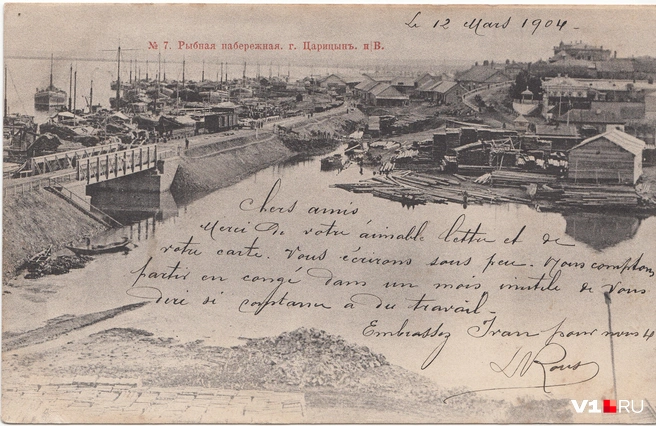 Le 12 Mars 1904
№ 7. Рыбная набережная. г. Царицынъ. н/В.
Chers amis
Merci de votre aimable lettre et de
votre carte. Vous écrirons sous peu. Nous comptons
partir en congé dans un mois inutile de vous
dire si a du travail-
Embrassez Ivan pour nous 4
V1.RU